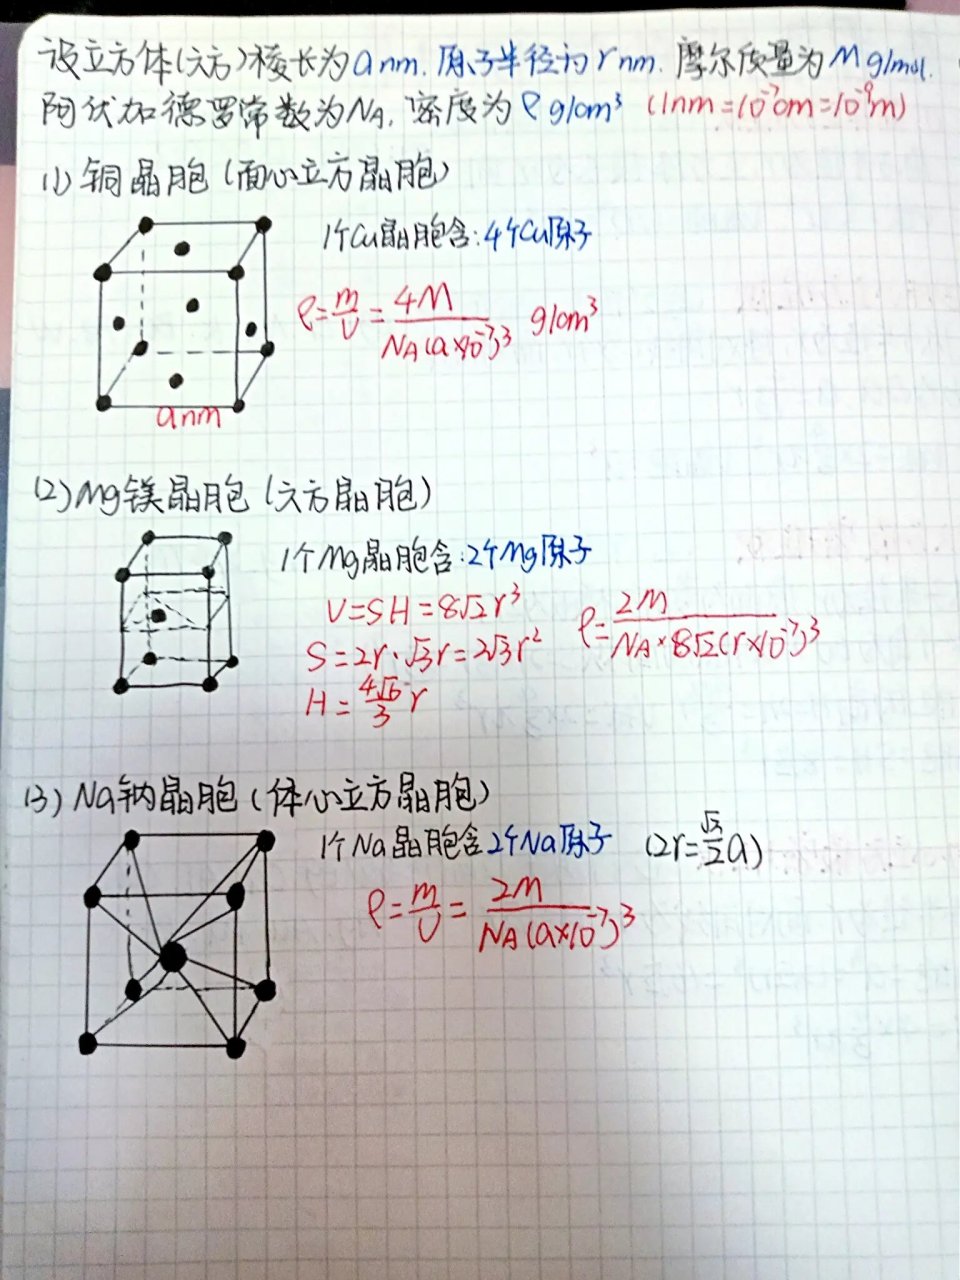 设立方体(六方)棱长为a nm. 原子半径为r nm. 摩尔质量为M g/mol.
阿伏加德罗常数为NA. 密度为ρ g/cm³ (1nm=10⁻⁷cm=10⁻⁹m)
(1) 铜晶胞(面心立方晶胞)
1个Cu晶胞含:4个Cu原子
ρ=m/V=4M/NA(a×10⁻⁷)³ g/cm³
a nm
(2) Mg镁晶胞(六方晶胞)
1个Mg晶胞含:2个Mg原子
V=SH=8√2r³
ρ=2M/NA×8√2(r×10⁻⁷)³
S=2r·√3r=2√3r²
H=4√6/3 r
(3) Na钠晶胞(体心立方晶胞)
1个Na晶胞含2个Na原子 (2r=√3/2 a)
ρ=m/V=2M/NA(a×10⁻⁷)³